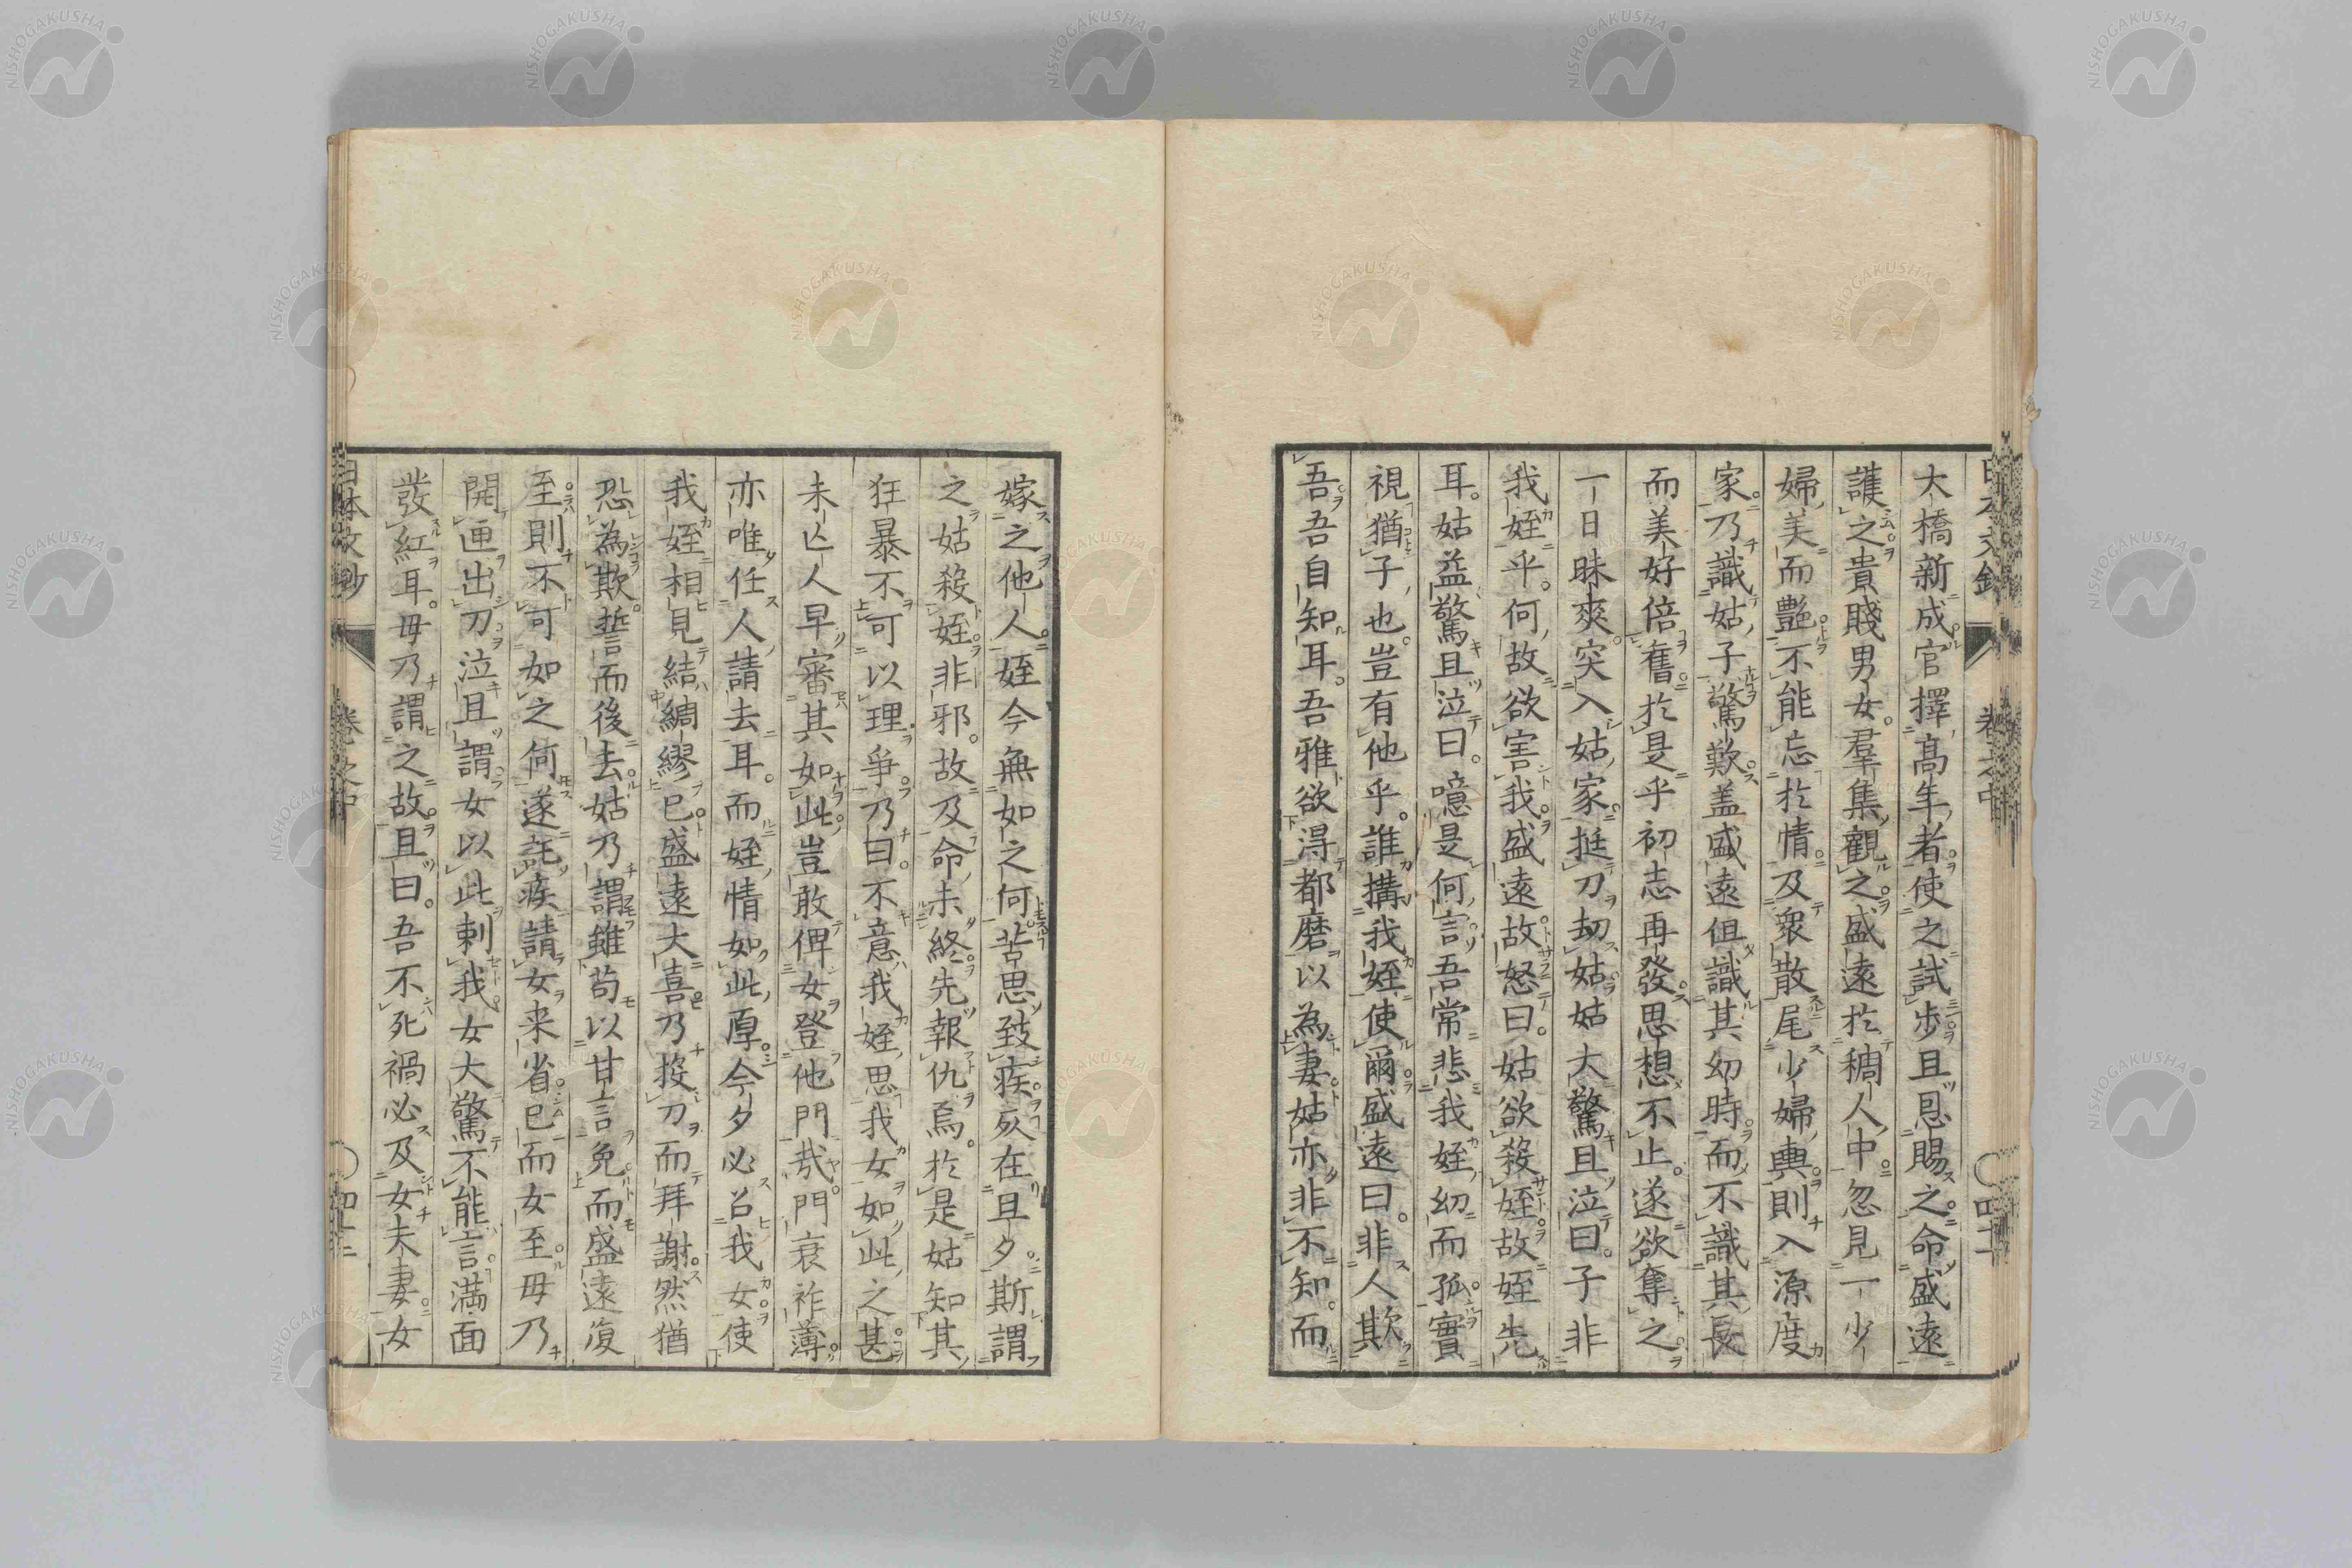 大橋新成官擇髙年者使之試步且恩賜之命盛遠
護之貴賤男女羣集觀之盛遠於稠人中忽見一少
婦美而艶不能忘於情及衆散尾少婦輿則入源度
家乃識姑子驚歎盖盛遠但識其幼時而不識其長
而美好倍舊於是乎初志再發思想不止遂欲奪之
一日昧爽突入姑家挺刀劫姑姑大驚且泣曰子非
我姪乎何故欲害我盛遠故怒曰姑欲殺姪故姪先
耳姑益驚且泣曰噫是何言吾常悲我姪幼而孤實
視猶子也豈有他乎誰搆我姪使爾盛遠曰非人欺
吾吾自知耳吾雅欲淂都磨以為妻姑亦非不知而
嫁之他人姪今無如之何苦思致疾死在旦夕斯謂
之姑殺姪非邪故及命未終先報仇焉於是姑知其
狂暴不可以理爭乃曰不意我姪思我女如此之甚
未亾人早審其如此豈敢俾女登他門㢤門衰祚薄
亦唯任人請去耳而姪情如此厚今夕必召我女使
我姪相見結綢繆已盛遠大喜乃投刀而拜謝然猶
恐為欺誓而後去姑乃謂雖苟以甘言免而盛遠復
至則不可如之何遂託疾請女来省已而女至母乃
開匣出刀泣且謂女以此刺我女大驚不能言満面
發紅耳毋乃謂之故且曰吾不死禍必及女夫妻女
日本文鈔 卷之中 四十二
NISHOGAKUSHA